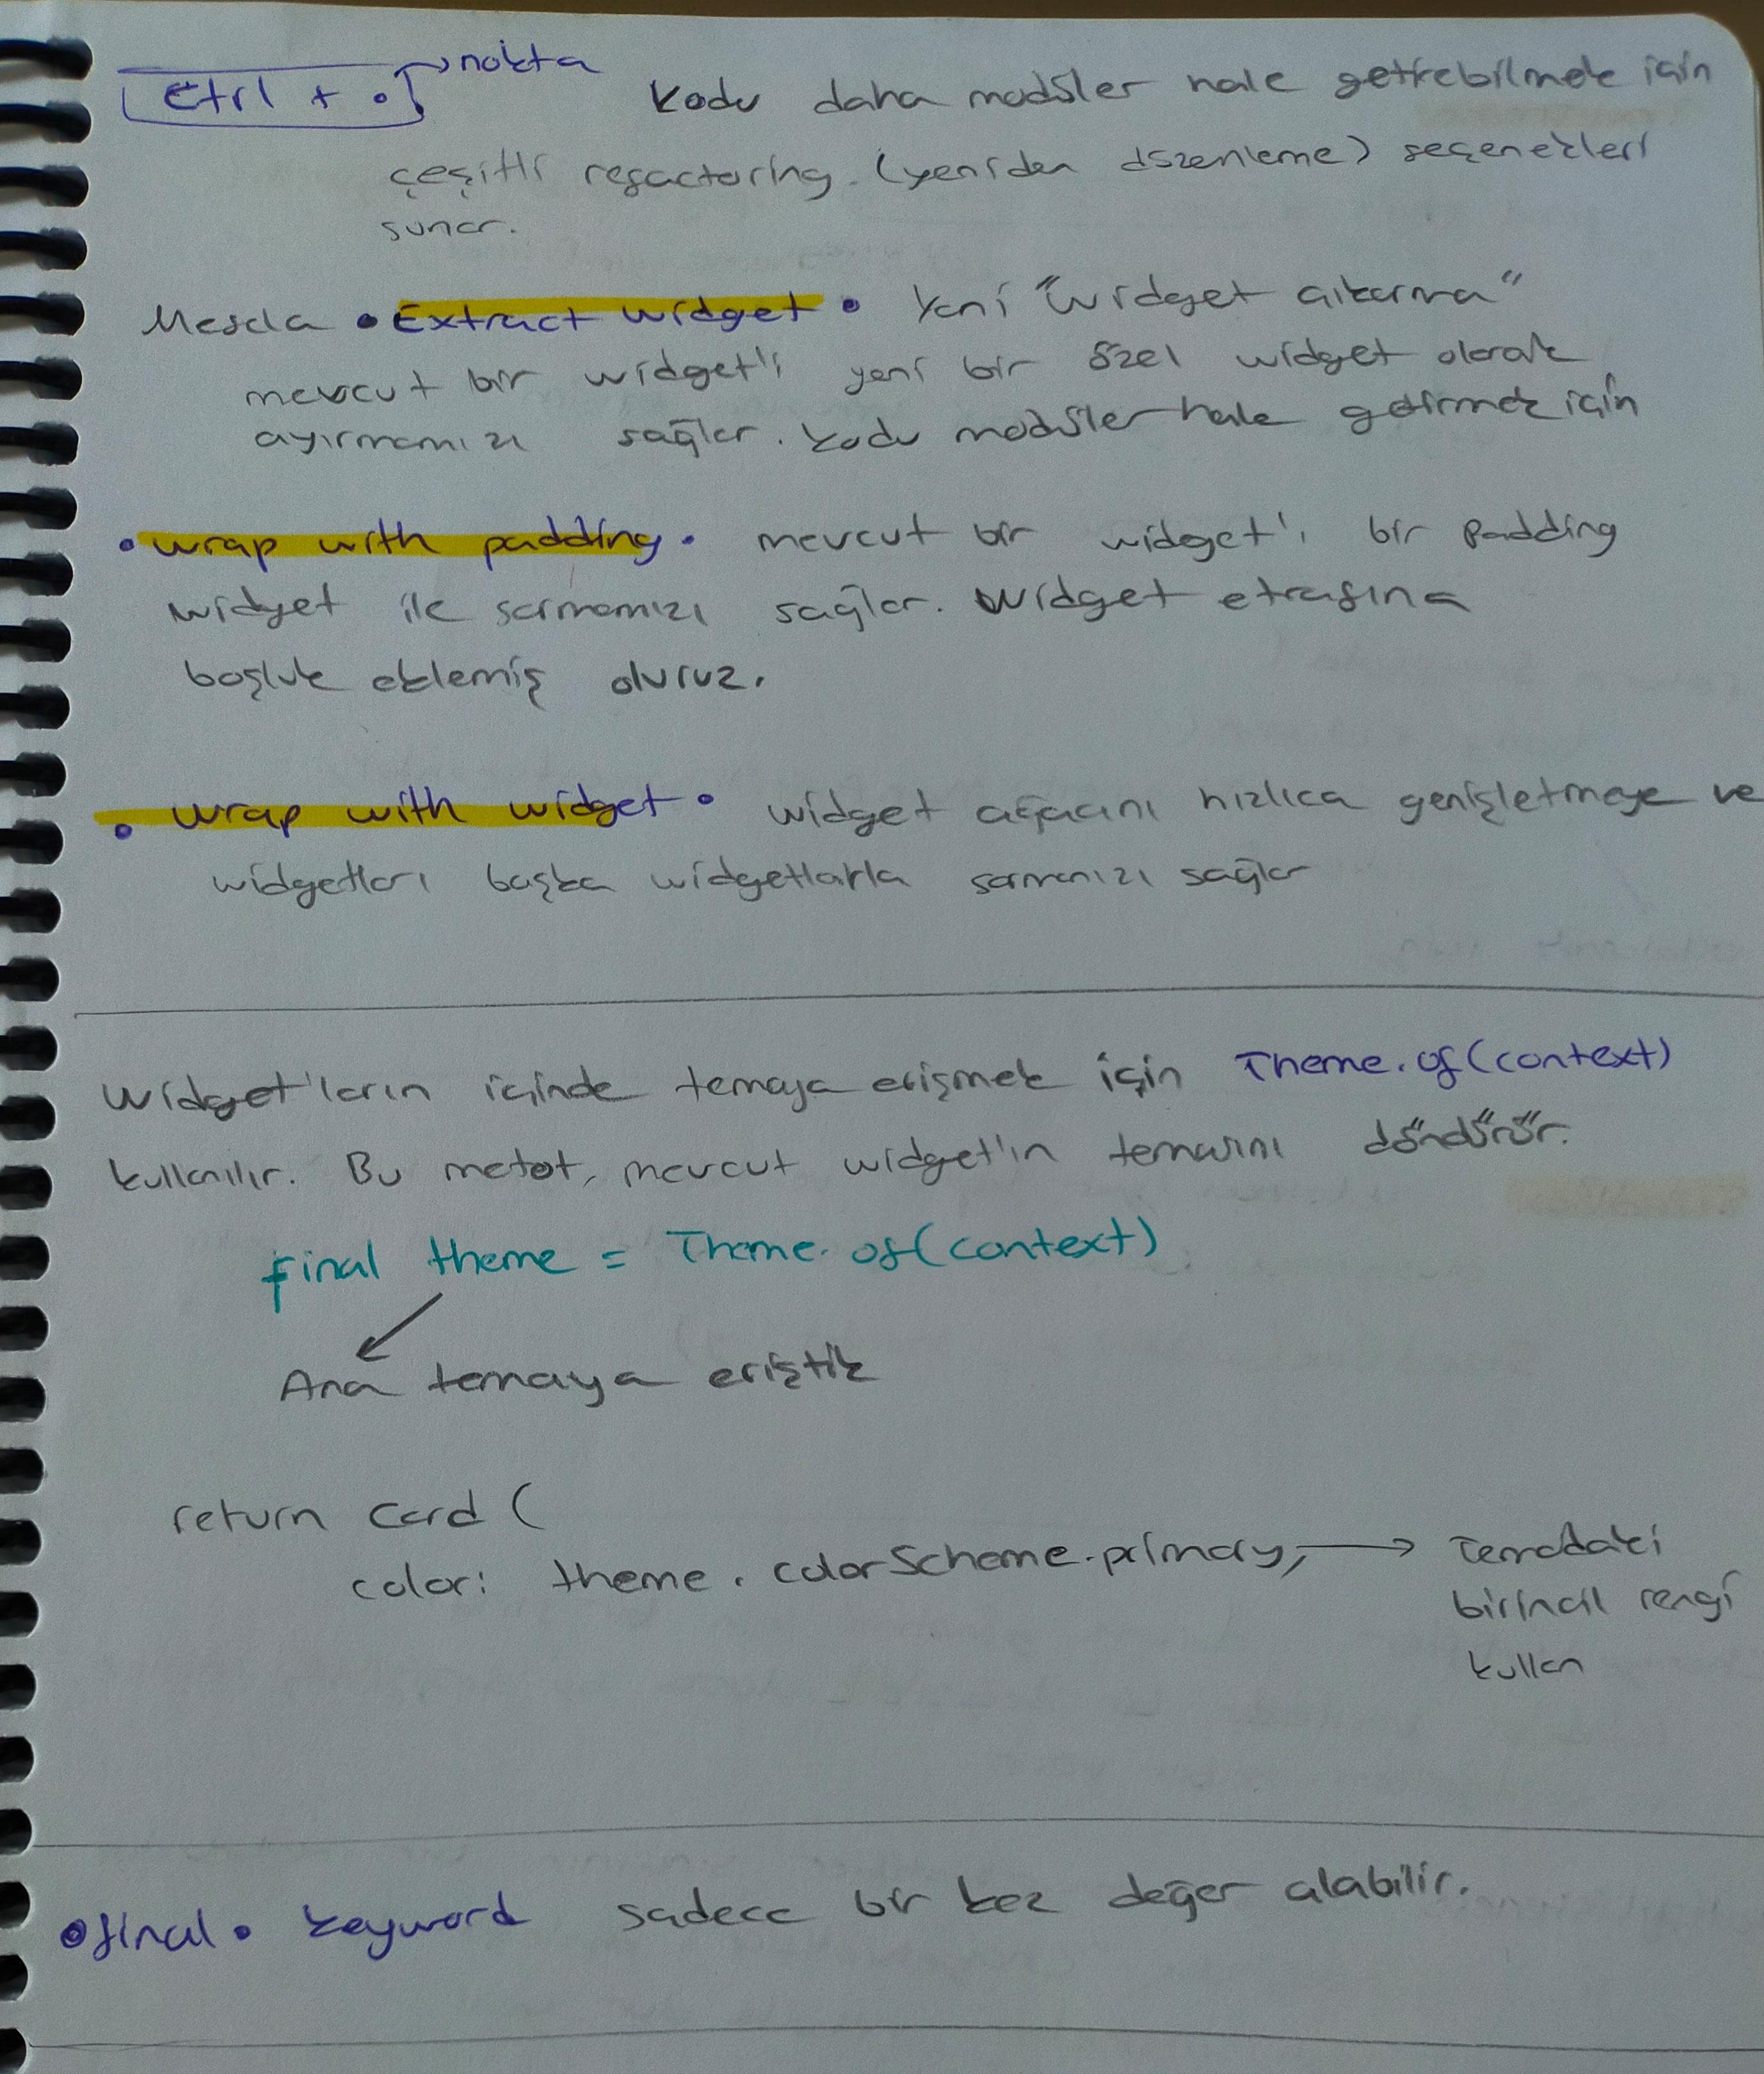 Ctrl + . → nokta Kodu daha modüler hale getirebilmek için
çeşitli refactoring (yeniden düzenleme) seçenekleri
sunar.
Mesela • Extract widget • Yeni "widget çıkarma"
mevcut bir widget'i yeni bir özel widget olarak
ayırmamızı sağlar. Kodu modüler hale getirmek için
• wrap with padding • mevcut bir widget'i bir padding
widget ile sarmamızı sağlar. Widget etrafına
boşluk eklemiş oluruz.
• wrap with widget • widget ağacını hızlıca genişletmeye ve
widgetları başka widgetlarla sarmanızı sağlar
Widget'ların içinde temaya erişmek için Theme.of(context)
kullanılır. Bu metot, mevcut widget'ın temasını döndürür.
final theme = Theme.of(context)
Ana temaya eriştik
return Card (
color: theme.colorScheme.primary, → Temadaki
birincil rengi
kullan
• final • keyword sadece bir kez değer alabilir.